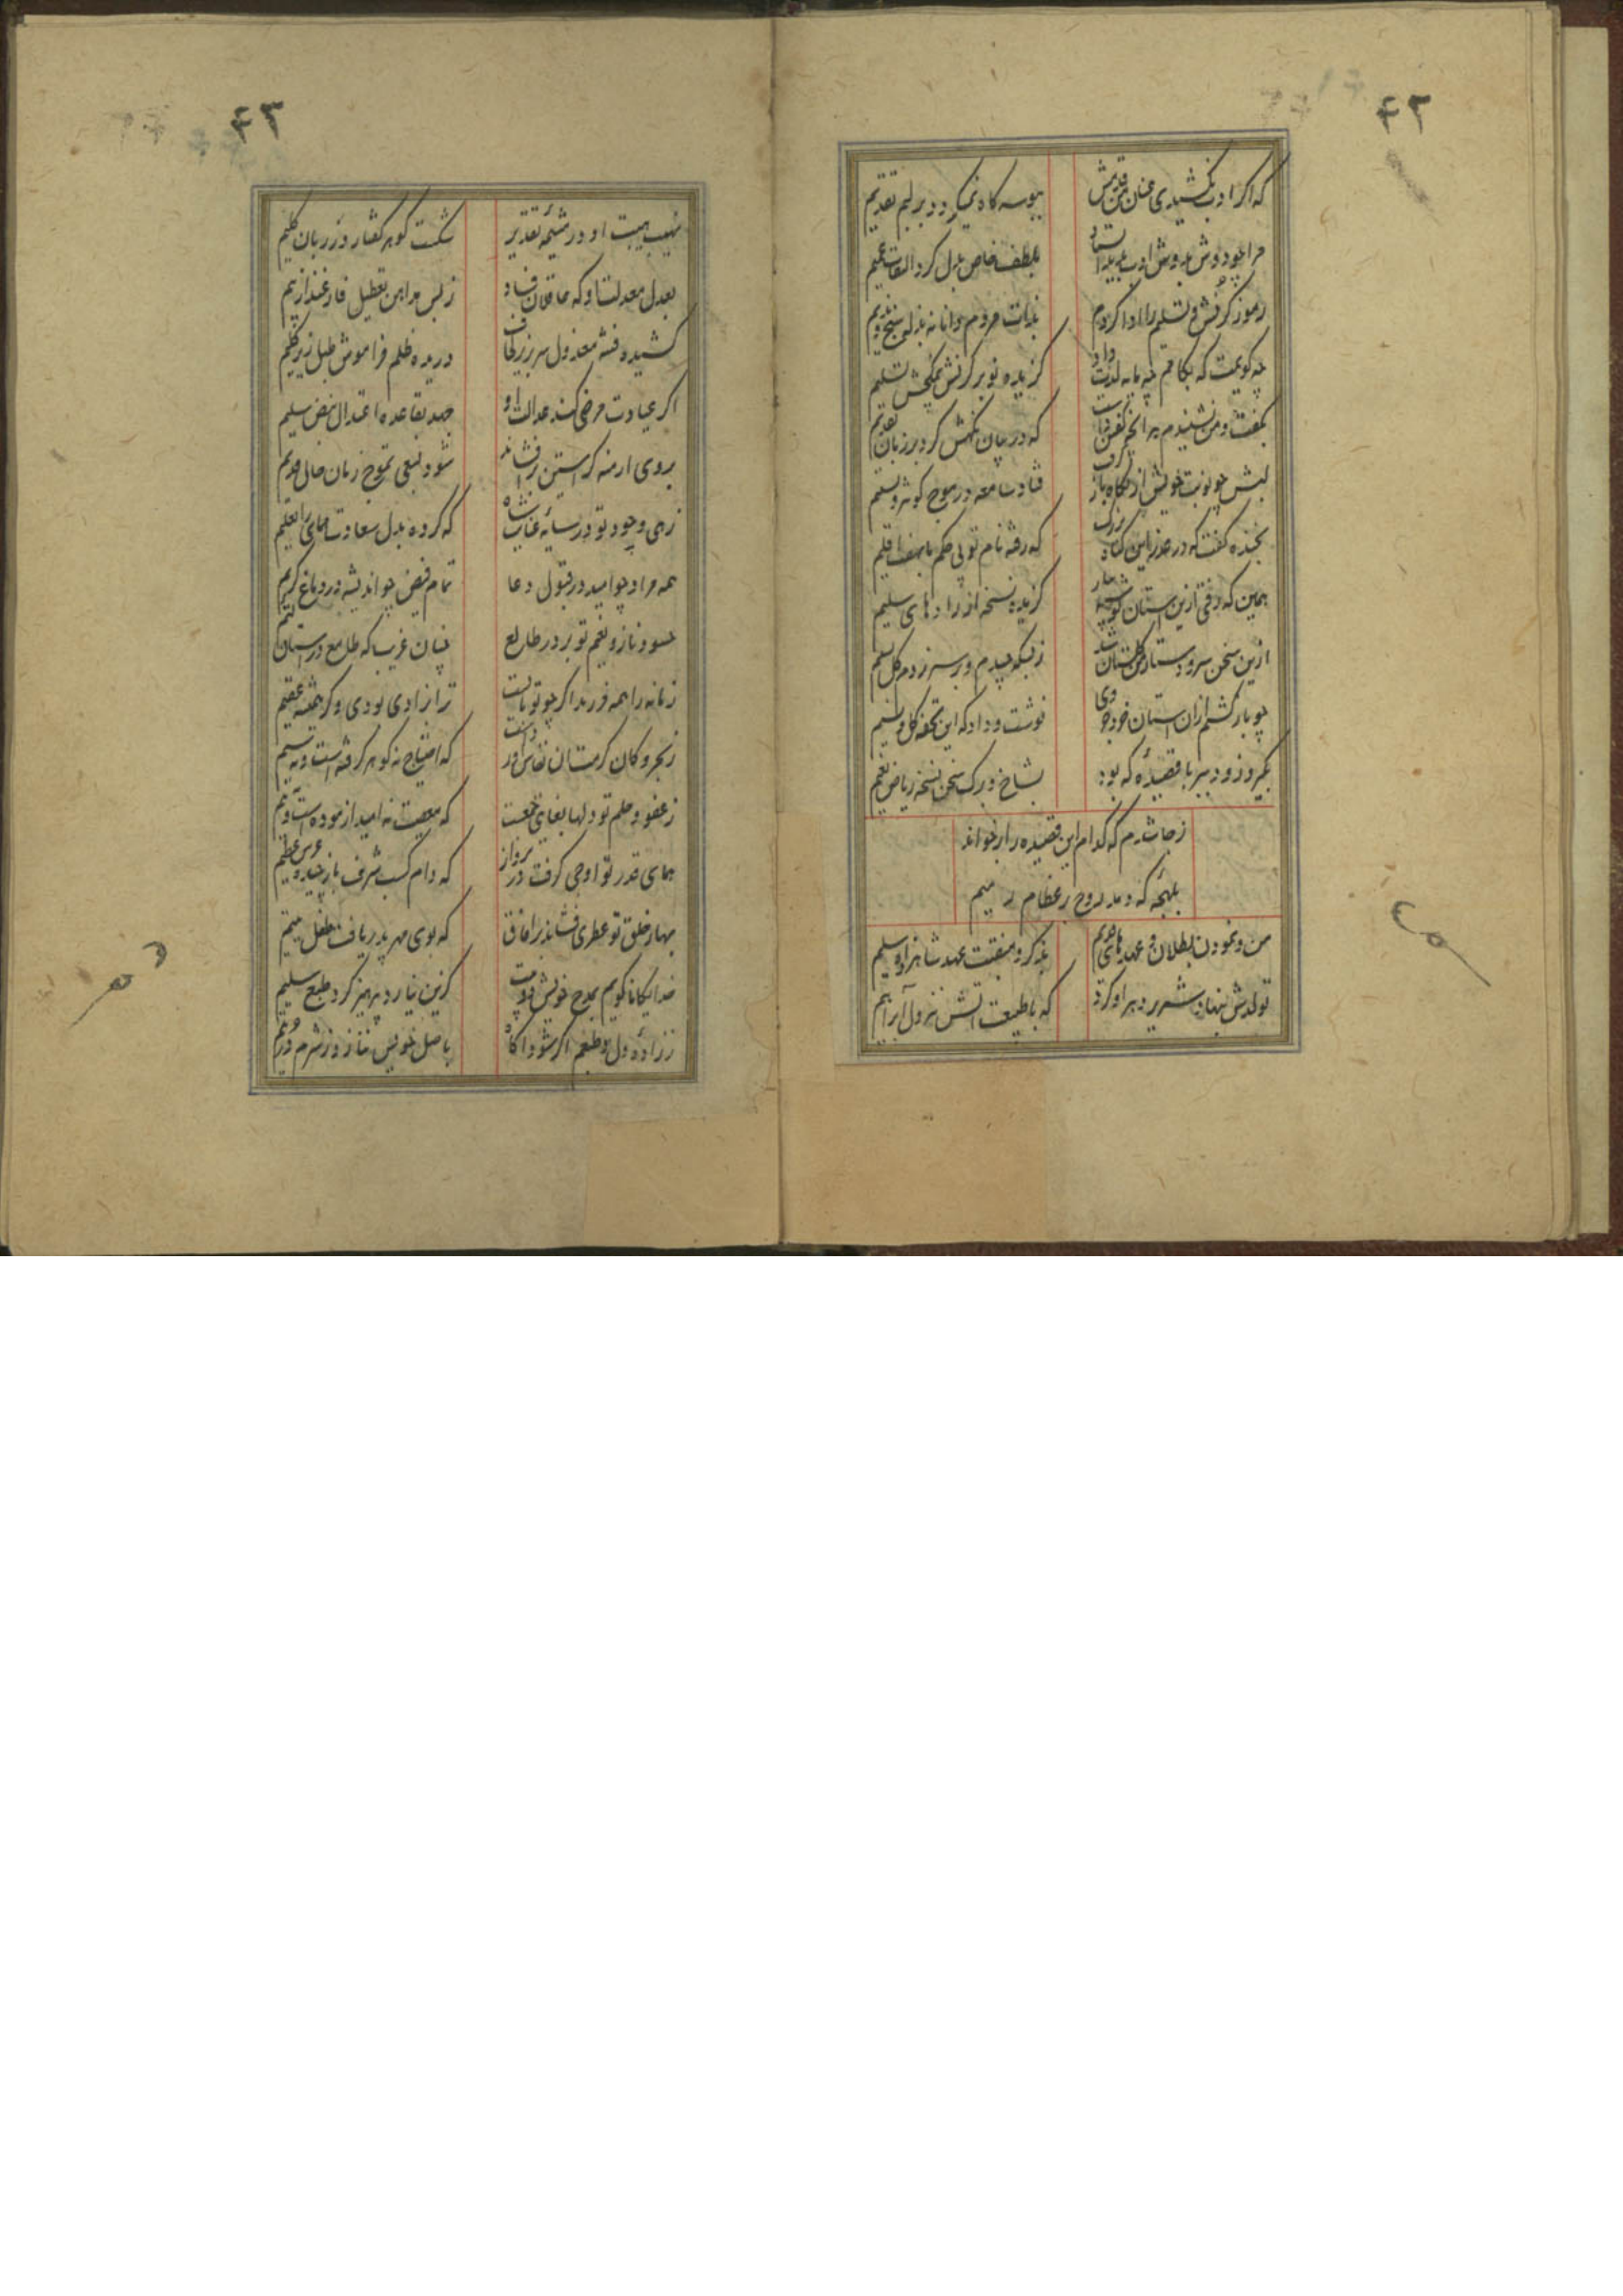 ۴۲
که اگر ادب نکشیدی عنان من قدمش
ببوسه گاه نمیکرد و بر لبم تقدیم
مرا چو دوش بدوش ادب بدید استاد
بلطف خاص بدل کرد التفات عمیم
رموز کرنش و تسلیم را ادا کردم
بذات مردم دانا نه بذله سنج و ندیم
چه گویمت که بکامم چه مایه لذت داد
گزیده نوبر کرنش بچش تسلیم
بگفت و من نشنیدم هر آنچه گفتن داشت
که در بیان نگهش کرد بر زبان تقدیم
لبش چو نوبت خویش از نگاه باز گرفت
فتاد سامعه در موج کوثر و تسنیم
بخنده گفت که در عذر این گناه بزرگ
که رفته نام تو بی حکم ما بهفت اقلیم
همین که رفتی ازین آستان گوشه
گزیده نسخه از زادهای سلیم
ازین سخن سر و دستار گلستان شد
ز بسکه چیدم و بر سر زدم گل تعلیم
چو باز گشتم ازان آستان خرد جودی
نوشت و داد که این تحفه گل و نسیم
بگیر و زود ببر با قصیده که بود
بشاخ و برگ سخن نسخه ریاض نعیم
ز جا شدم که کدام این قصیده را برخواند
بلهجه که دمد روح بر عظام رمیم
من و نمودن بطلان عهدهای قدیم
بذکر و منقبت عهد شاهزاده سلیم
تولدش بنهاد شریر دهر او کرد
که با طبیعت آتش نزول ابراهیم
۴۳
نهیب هیبت او در مشیمه تقدیر
شکست گوهر گفتار در زبان کلیم
بعدل معدلت او که عاقلان فساد
ز بس مداهن تعطیل فارغند از بیم
کشیده فتنه معزول سر بزیر لحاف
دریده ظلم فراموش طبل زیر گلیم
اگر عیادت مرضی کند عدالت او
جهد بقاعده اعتدال نبض سلیم
بروی ارمنه گر آستین برافشاند
شود بنبعی تموج زبان حال قدیم
زهی وجود تو در سایه عنایت شاه
که کرده بذل سعادت همای را تعلیم
همه مراد چو امید در قبول دعا
تمام فیض چو اندیشه در دماغ کریم
حسود ناز و نعیم تو بر در طالع
چنان غریب که طامع در آستان لئیم
زمانه را همه فرزند اگر چو تو بایست
ترا نزادی بودی و گر همیشه عقیم
ز بحر و کان کرمت آن نفایس آورد
که احتیاج نه گوهر گرفته است و نه سیم
ز عفو و حلم تو دلها بغایتی جمعست
که معصیت نه امید آزموده است و نه بیم
همای قدر تو اوجی گرفت در پرواز
که دام کسب شرف باز چیده عرش عظیم
بهار خلق تو عطری فشاند بر آفاق
که بوی مهر پدر یافت طفل یتیم
خدایگانا گویم بمدح خویش دو بیت
کزین نیارد پرهیز کرد طبع سلیم
ز زاده دل و طبعم اگر شود آگاه
باصل خویش ننازد ز شرم در یتیم